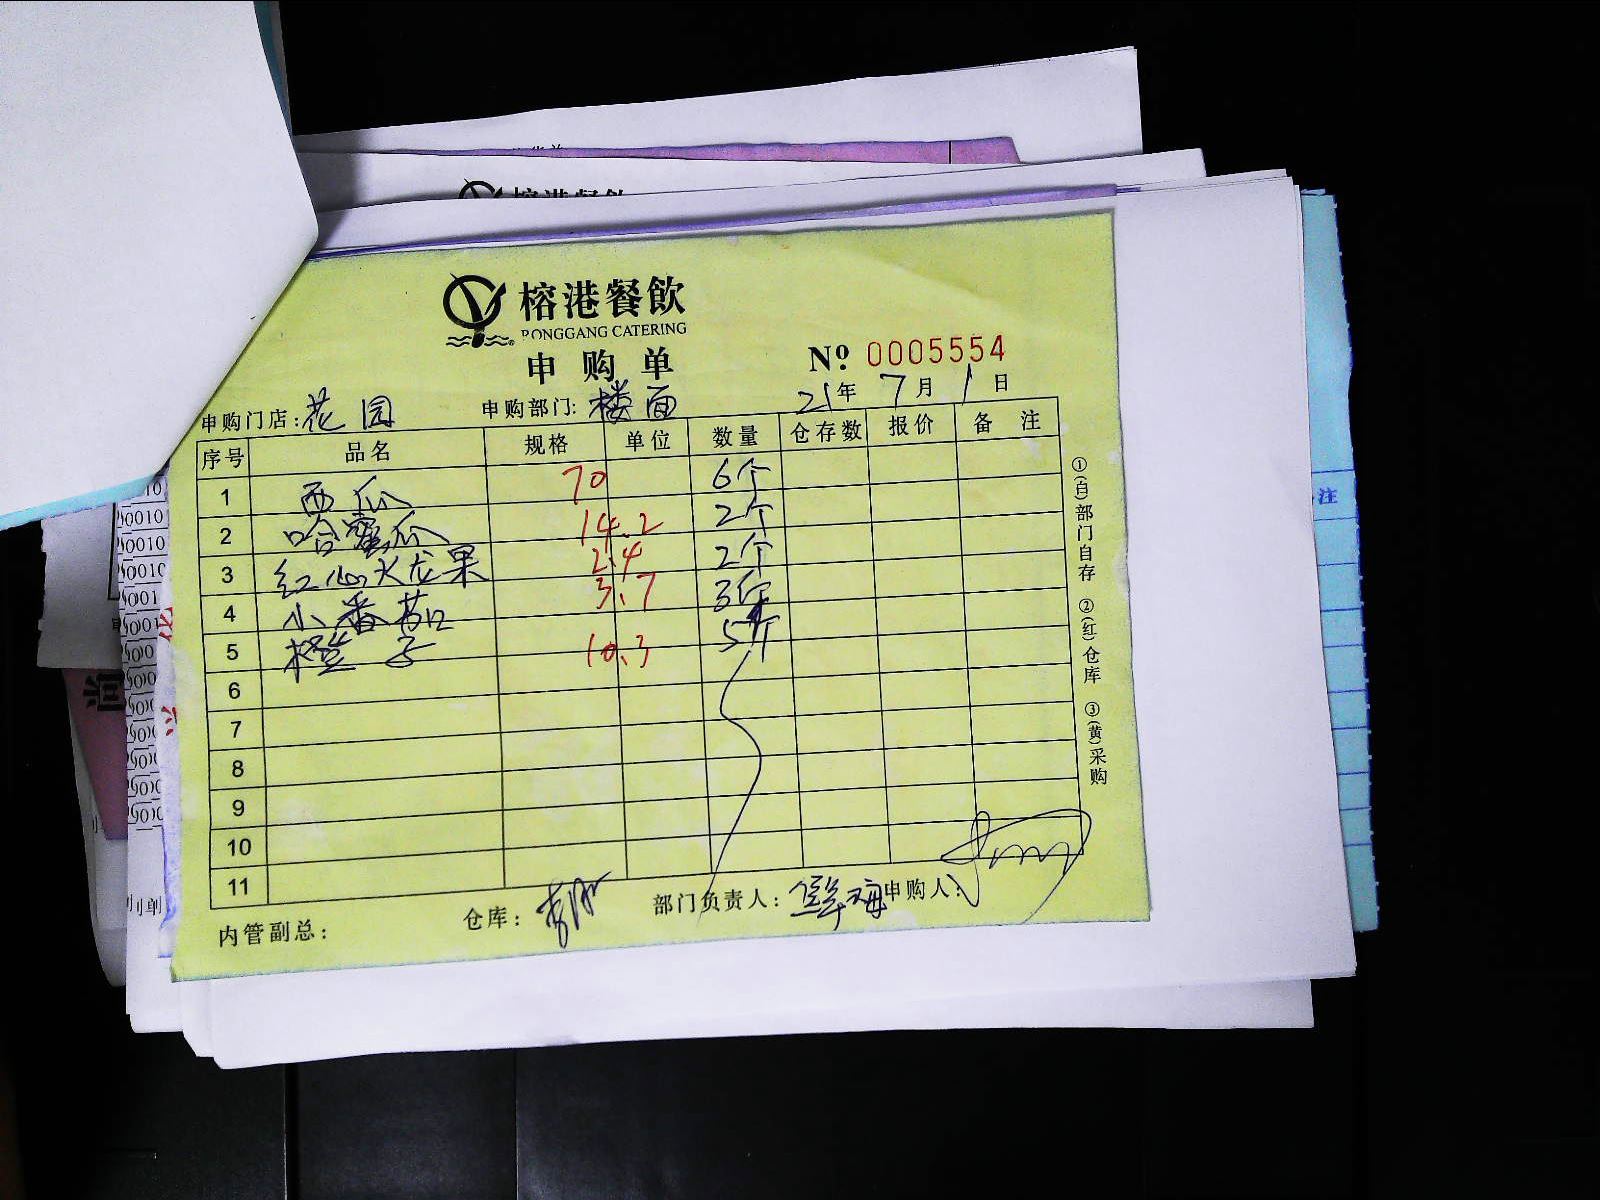 榕港餐飲
RONGGANG CATERING
申购单
№ 0005554
申购门店: 花园 申购部门: 楼面 21年 7月 1日
序号 品名 规格 单位 数量 仓存数 报价 备注
1 西瓜 70 6个
2 哈蜜瓜 14.2 2个
3 红心火龙果 2.4 2个
4 小番茄 3.7 3个
5 橙子 10.3 5个
6
7
8
9
10
11
内管副总: 仓库: 部门负责人: 申购人:
①(白)部门自存 ②(红)仓库 ③(黄)采购